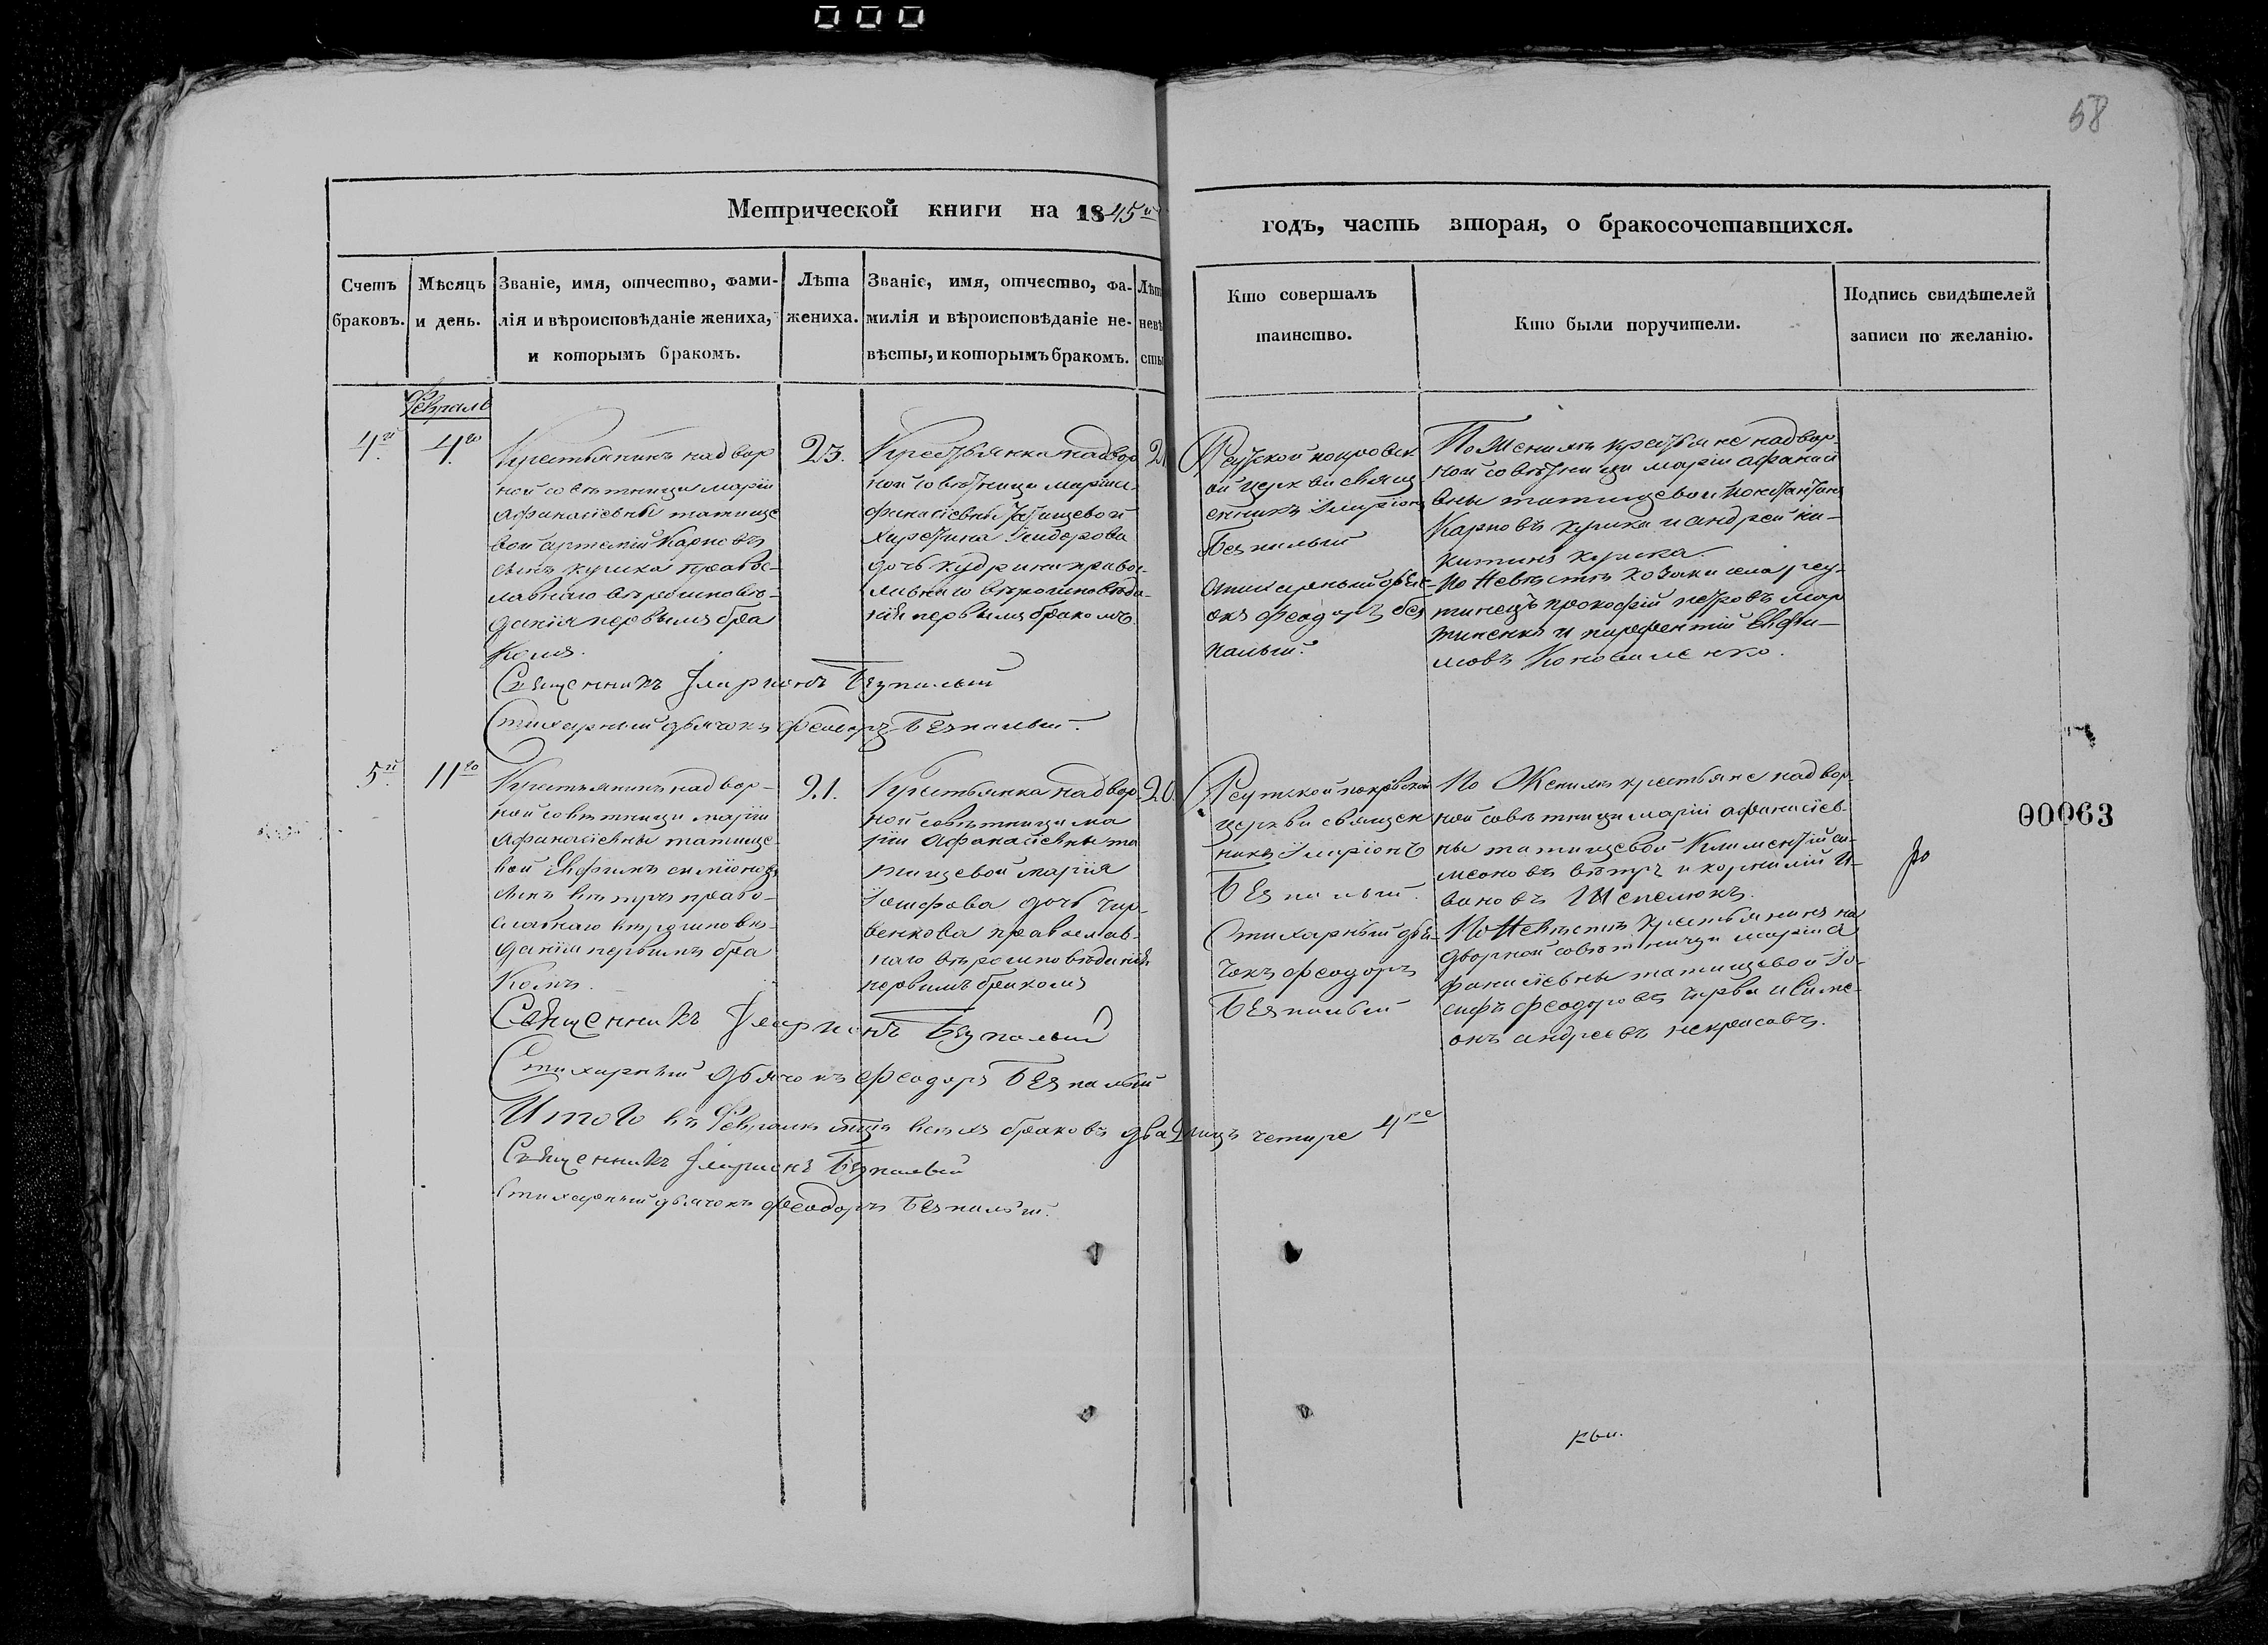 58
Метрической книги на 1845й
годъ, часть вторая, о бракосочетавшихся.
Счетъ
браковъ.
Мѣсяцъ
и день.
Званіе, имя, отчество, фами-
лія и вѣроисповѣданіе жениха,
и которымъ бракомъ.
Лѣта
жениха.
Званіе, имя, отчество, фа-
милія и вѣроисповѣданіе не-
вѣсты, и которымъ бракомъ.
Лѣт
невѣ
сты
Кто совершалъ
таинство.
Кто были поручители.
Подпись свидѣтелей
записи по желанію.
Февраль
4й
4го
Крестьянинъ надвор
ной совѣтници Маріи
Афанасіевны татище
вой Артемій Карповъ
сынъ кулика правос-
лавнаго вѣроисповѣ-
данія первымъ бра
комъ.
23.
Крестьянка надвор
ной совѣтници Маріи а
фанасіевны татищевой
Харетина Ісидорова
дочь кудрина правос-
лавнаго вѣроисповѣда-
нія первымъ бракомъ.
2
Реутской покровск
ой церкви свящ
енникъ Іларіонъ
Безпалый
Стихарный дьяч-
окъ Феодоръ без
палый.
По Женихѣ крестьяне надвор-
ной совѣтници Маріи Афанасі
вны татищевой Константинъ
Карповъ кулика и андрей ни-
китинъ кулика.
По Невѣстѣ козаки села реу-
тинецъ прокофій петровъ мар
тиненко и парфентій Евфи-
мовъ Коноваленко.
Священникъ Іларионъ Безпалый
Стихарный дьячокъ Феодоръ Безпалый.
5й
11го
Крестьянинъ надвор-
ной совѣтници Маріи
Афанасіевны татище-
вой Евфимъ симіоновъ
сынъ вѣтръ право-
славнаго вѣроисповѣ-
данія первымъ бра
комъ.
21.
Крестьянка надвор
ной совѣтници Ма
ріи Афанасіевны та
тищевой Марія
Іосифова дочь чир-
венкова православ-
наго вѣроисповѣданія
первымъ бракомъ
20.
Реутской покровской
церкви священ
никъ Іларіонъ
Безпалый.
Стихарный дья-
чокъ феодоръ
Безпалый
По Женихѣ крестьяне надвор-
ной совѣтници Маріи Афанасіев-
ны татищевой Климентій си-
меоновъ вѣтръ и корнилій И-
вановъ Шепелюкъ.
По Невѣстѣ крестьянинъ на
дворной совѣтници Маріи А
фанасіевны татищевой Іо-
сифъ феодоровъ чирва и Симе-
онъ андреевъ некрасовъ.
00063
Священникъ Іларионъ Безпалый
Стихарный дьячокъ Феодоръ Безпалый
Итого въ Февралѣ мцѣ всѣхъ браковъ два 2 лицъ четире 4ре
Священникъ Іларионъ Безпалый
Стихарный дьячокъ Феодоръ Безпалый.